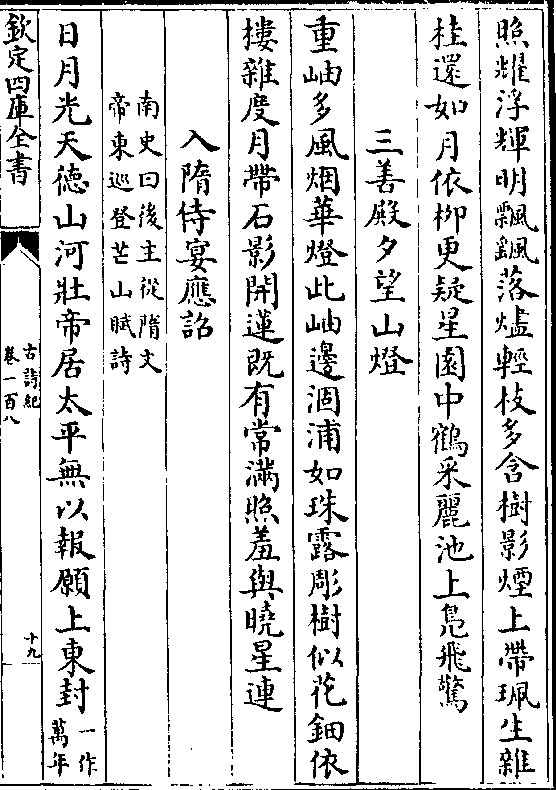 照耀浮輝明飄颻落燼輕枝多含樹影煙上帶珮生雜
桂還如月依柳更疑星園中鶴采麗池上鳧飛驚
三善殿夕望山燈
重岫多風烟華燈此岫邊涸浦如珠露彫樹似花鈿依
樓雜度月帶石影開蓮既有常滿照羞與曉星連
入隋侍宴應詔
南史曰後主從隋文
帝東巡登芒山賦詩
日月光天德山河壯帝居太平無以報願上東封一作
萬年
欽定四庫全書
古詩紀
卷一百八
十九